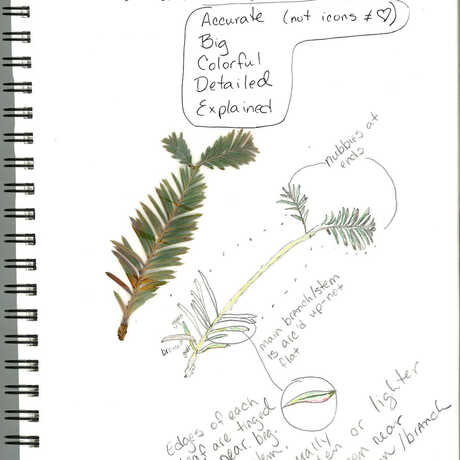 Accurate (not icons ≠ ♡)
Big
Colorful
Detailed
Explained
nubbies at
ends
main branch/stem
is arc'd up-not
flat
green
brown
Edges of each
leaf are tinged
near big
stem.
or lighter
near
/branch